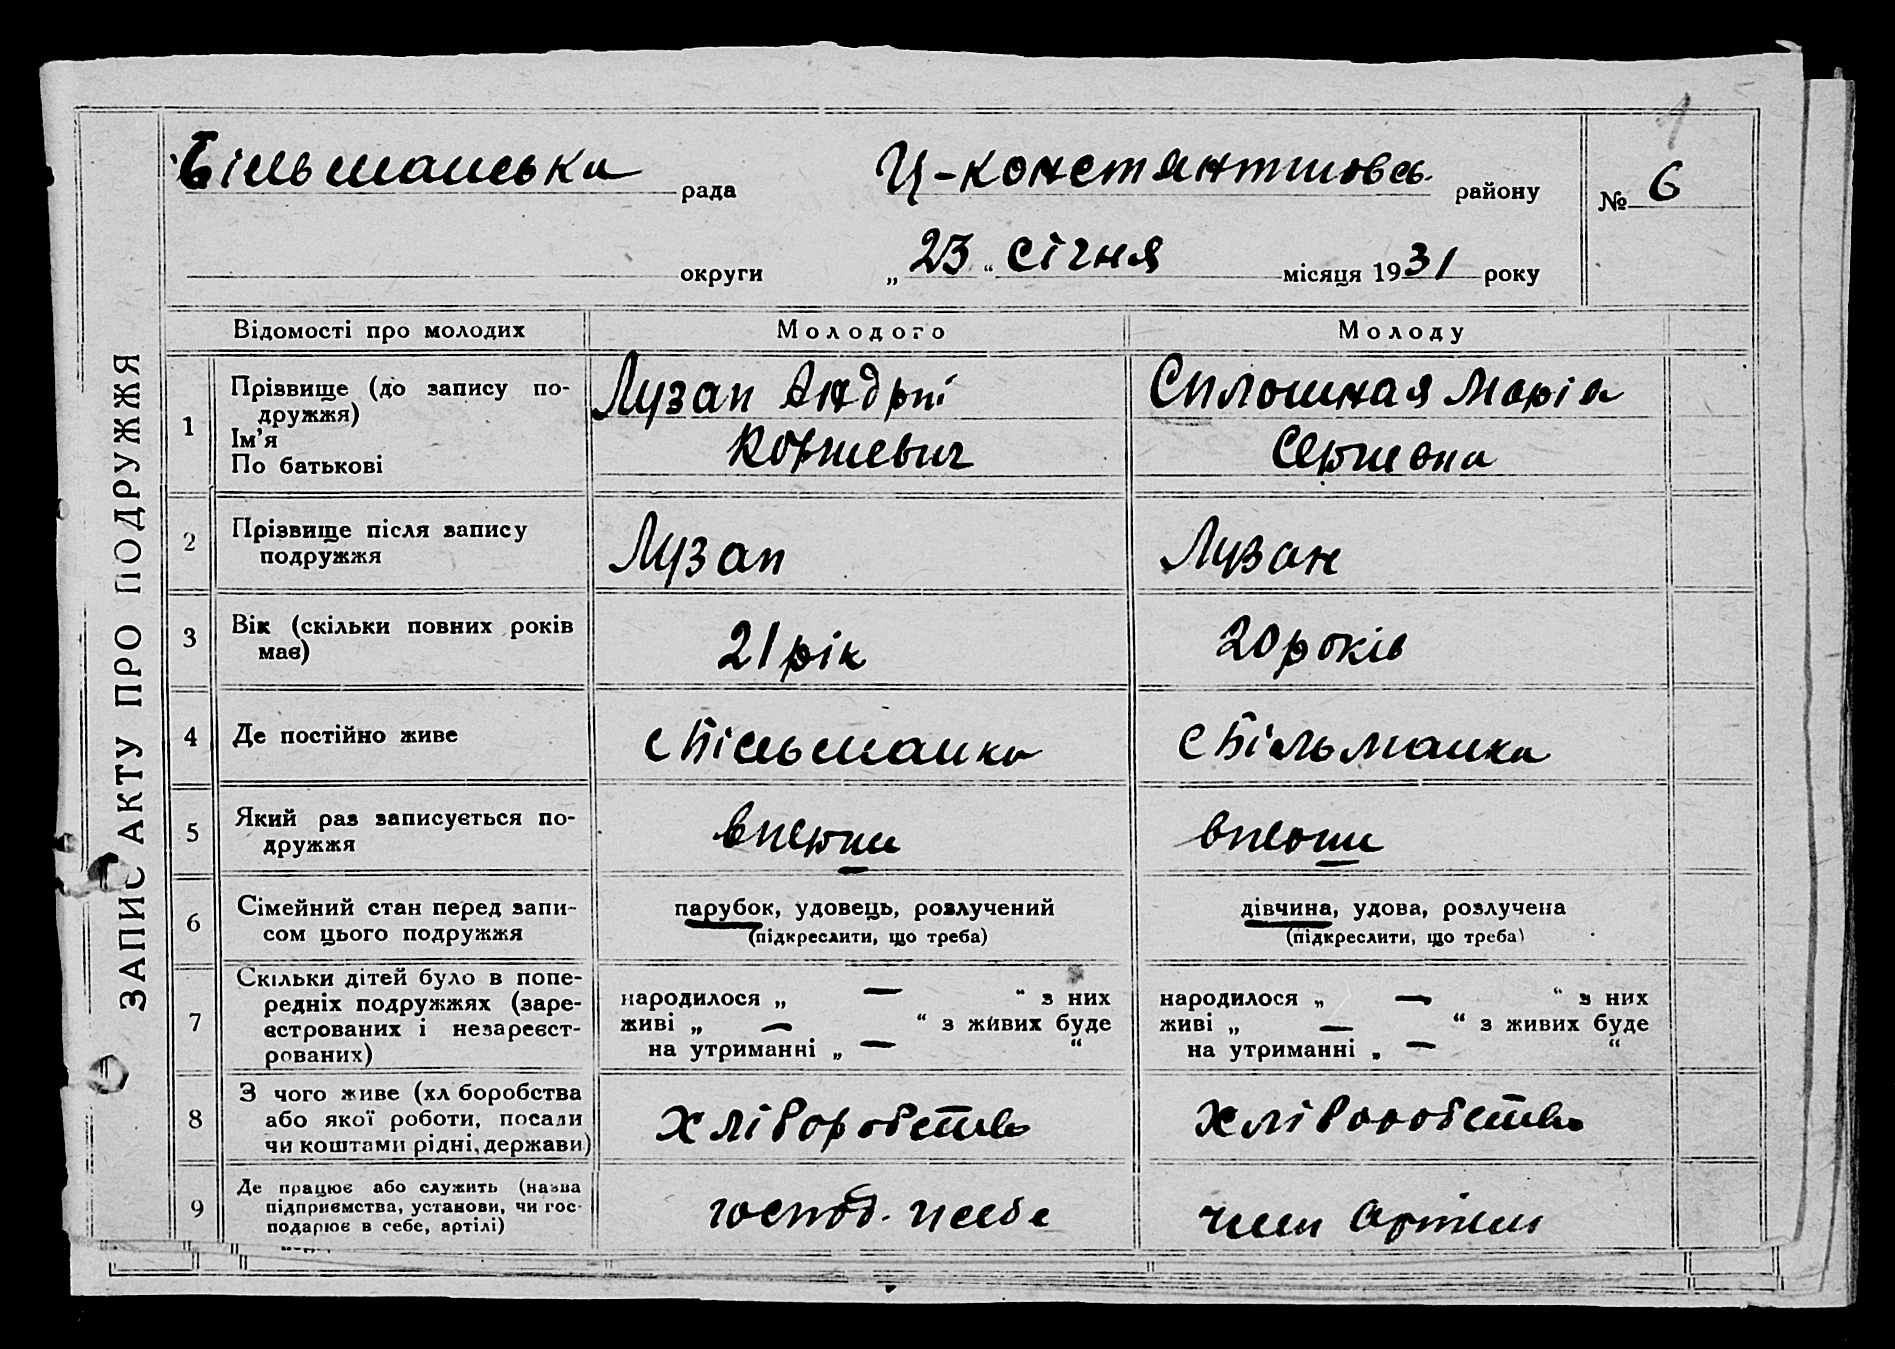 1
Більманська рада Ц-константиновсь. району № 6
округи „ 23 “ січня місяця 1931 року
ЗАПИС АКТУ ПРО ПОДРУЖЖЯ
Відомості про молодих Молодого Молоду
1 Прізвище (до запису по-
дружжя)
Ім’я
По батькові
Лузан Андрій
Корнієвич
Сплошная Марія
Сергиевна
2 Прізвище після запису
подружжя
Лузан
Лузан
3 Вік (скільки повних років
має)
21 рік
20 років
4 Де постійно живе
с Більманка
с Більманка
5 Який раз записується по-
дружжя
вперши
вперши
6 Сімейний стан перед запи-
сом цього подружжя
парубок, удовець, розлучений
(підкреслити, що треба)
дівчина, удова, розлучена
(підкреслити, що треба)
7 Скільки дітей було в попе-
редніх подружжях (заре-
єстрованих і незареєст-
рованих)
народилося „ — “ з них
живі „ — “ з живих буде
на утриманні „ — “
народилося „ — “ з них
живі „ — “ з живих буде
на утриманні „ — “
8 З чого живе (хл боробства
або якої роботи, посади
чи коштами рідні, держави)
хліборобство
хліборобство
9 Де працює або служить (назва
підприємства, установи, чи гос-
подарює в себе, артілі)
господ. у себе
член артіли